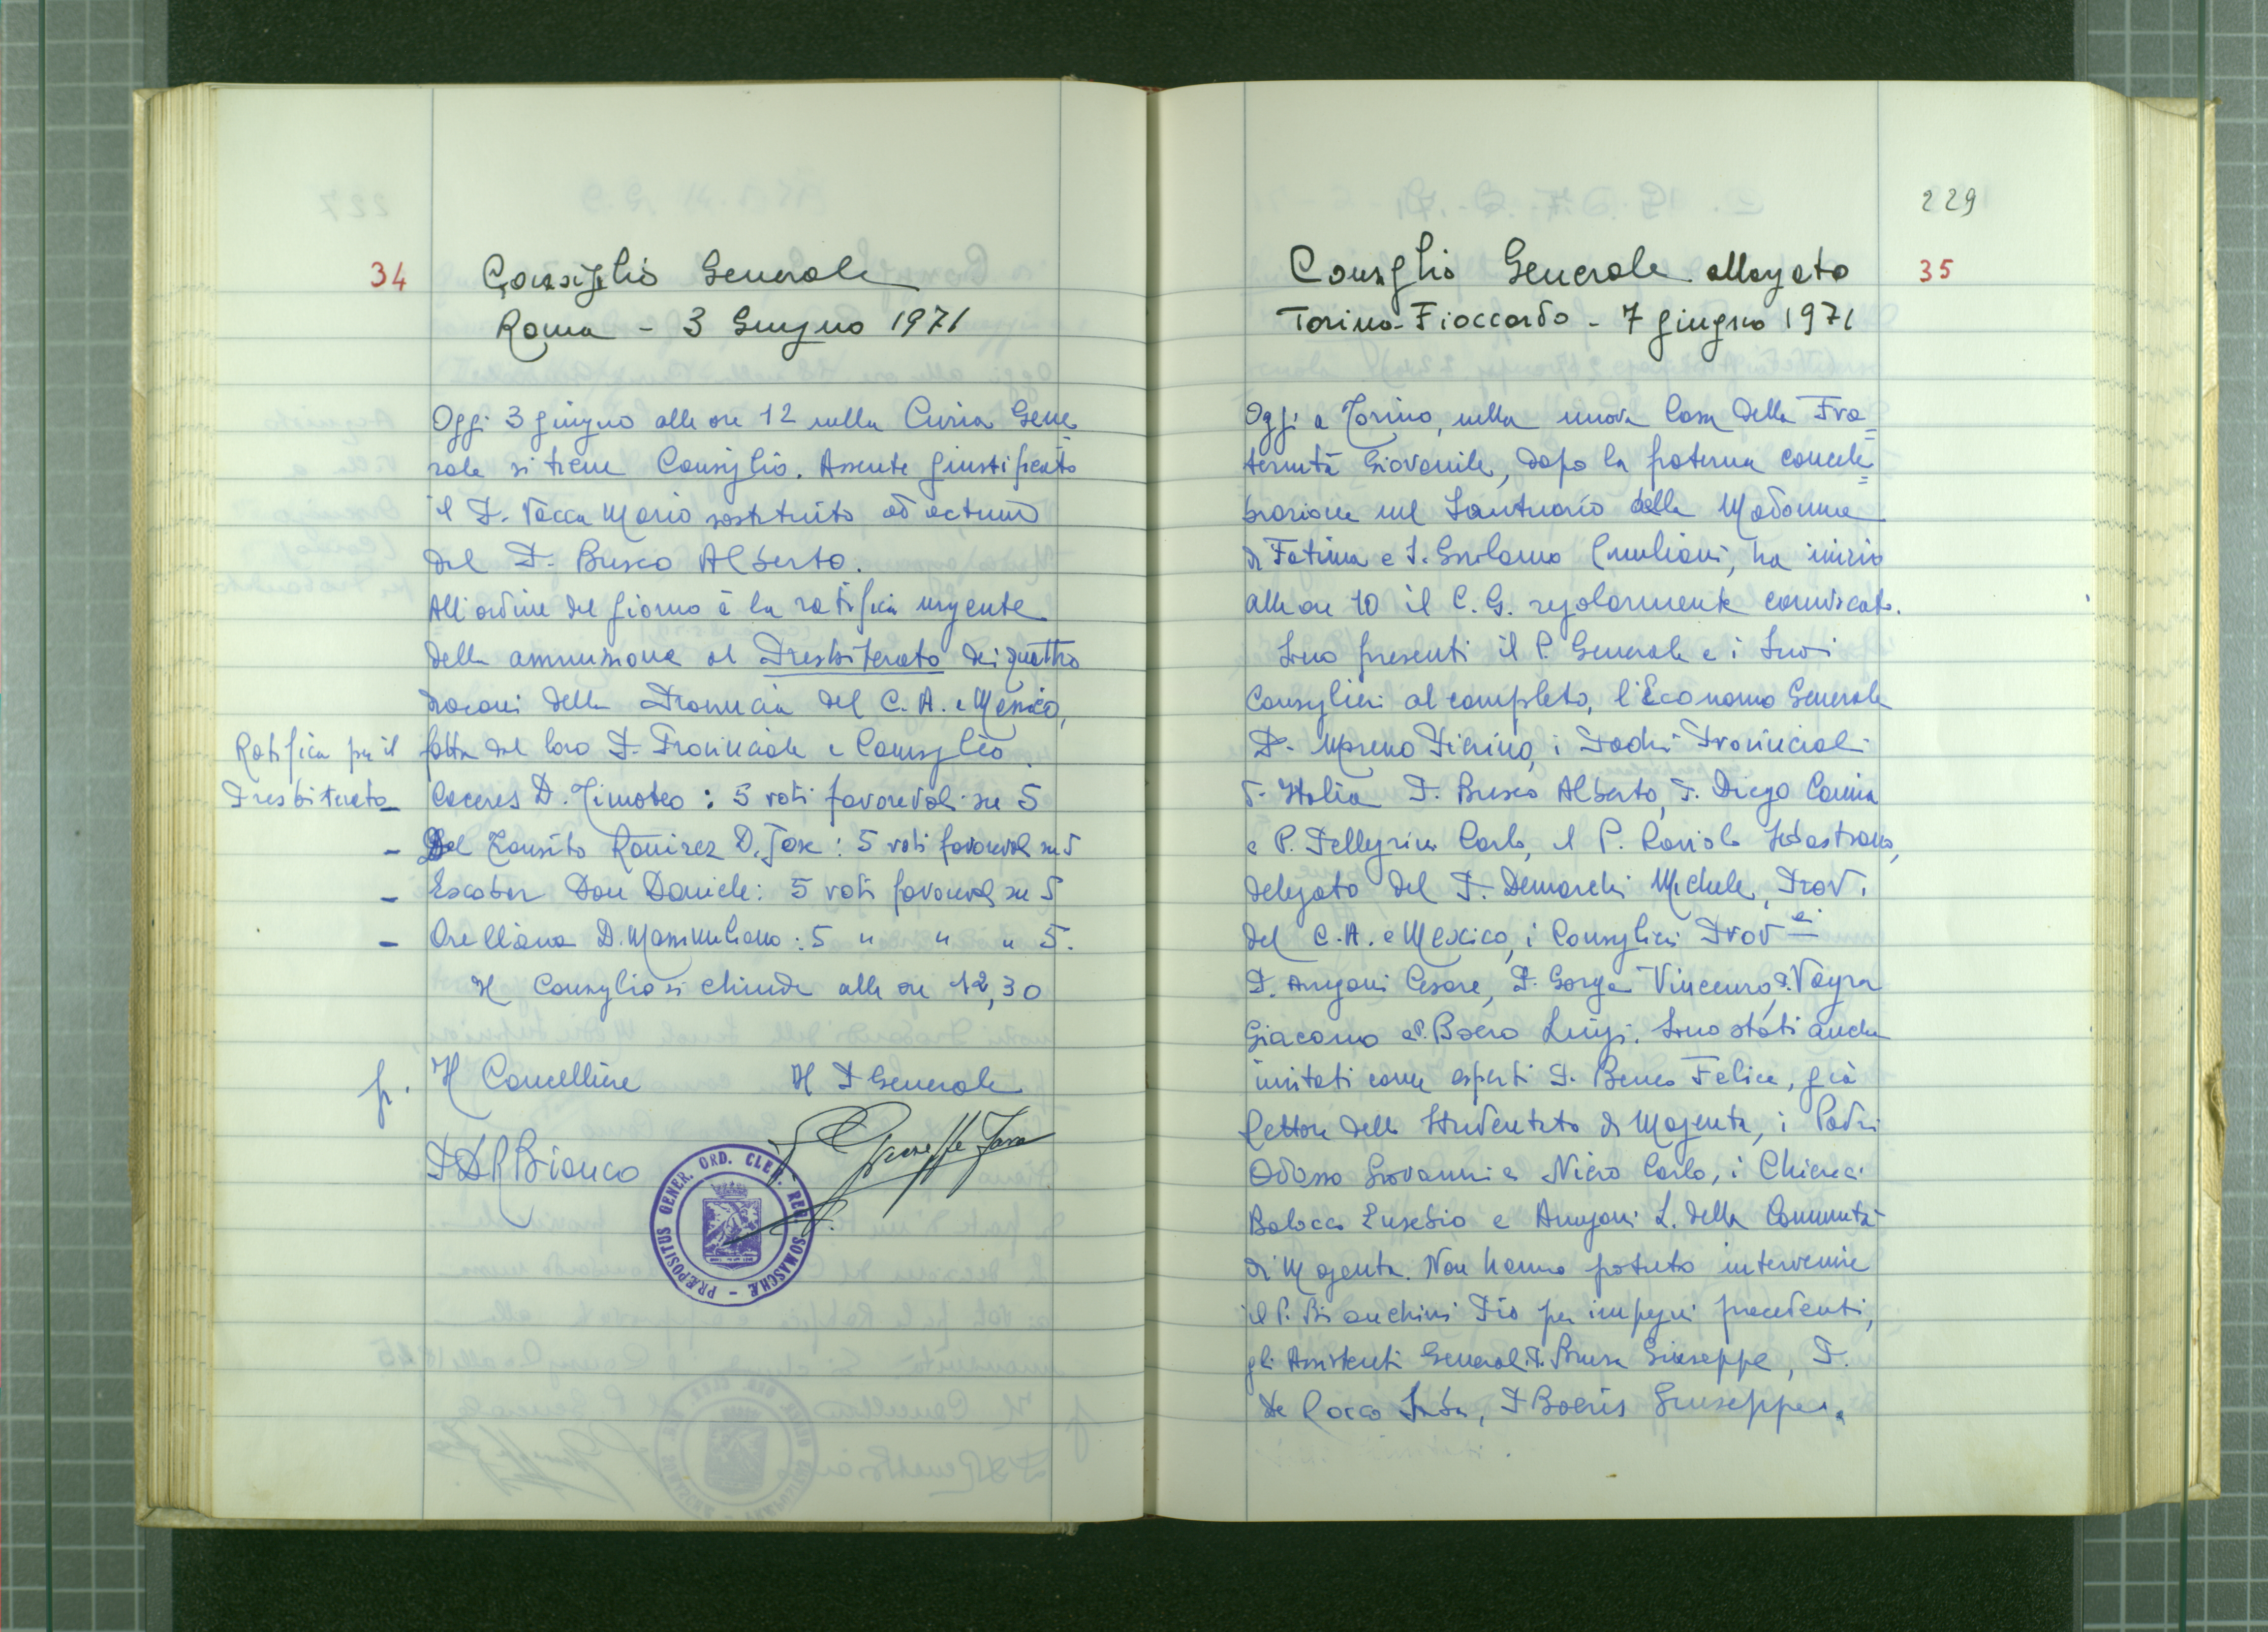 34
Consiglio Generale
Roma - 3 Giugno 1971
Oggi 3 giugno alle ore 12 nella Curia Gene=
rale si tiene Consiglio. Assente giustificato
il P. Vacca Mario sostituito ad actum
dal P. Busco Alberto.
All'ordine del giorno è la ratifica urgente
della ammissione al Presbiterato dei quattro
diaconi della Provincia del C. A. e Messico,
Ratifica per il
Presbiterato
fatta dal loro P. Provinciale e Consiglio.
- Caceres D. Timoteo : 5 voti favorevoli su 5
- Del Transito Ramirez D. Jose : 5 voti favorevoli su 5
- Escobar Don Daniele : 5 voti favorevoli su 5
- Orellana D. Massimiliano : 5 " " " 5.
Il Consiglio si chiude alle ore 12,30
fr. Il Cancelliere Il P Generale
Bianco
P. Giuseppe Fava
PRÆPOSITUS GENER. ORD. CLER. REG. SOMASCHÆ -
229
35
Consiglio Generale allargato
Torino-Fioccardo - 7 giugno 1971
Oggi a Torino, nella nuova Casa della Fra=
ternità Giovanile, dopo la fraterna concele=
brazione nel Santuario della Madonna
di Fatima e S. Girolamo Emiliani, ha inizio
alle ore 10 il C. G. regolarmente convocato.
Sono presenti il P. Generale e i Suoi
Consiglieri al completo, l'Economo Generale
P. Moreno Pierino, i Padri Provinciali
d'Italia P. Busco Alberto, P. Diego Camia
e P. Pellegrini Carlo, il P. Raviolo Sebastiano,
delegato del P. Demarchi Michele, Prov.
del C.A. e Mexico, i Consiglieri Prov.li
P. Arrigoni Cesare, P. Gorga Vincenzo, P. Vayra
Giacomo e P. Boero Luigi. Sono stati anche
invitati come esperti P. Beneo Felice, già
Rettore dello Studentato di Magenta, i Padri
Odasso Giovanni e Nicro Carlo, i Chierici
Balocco Eusebio e Arrigoni L. della Comunità
di Magenta. Non hanno potuto intervenire
il P. Bianchini Pio per impegni precedenti,
gli Assistenti Generali P. Giuseppe, P.
De Rocco, P Boeris Giuseppe.